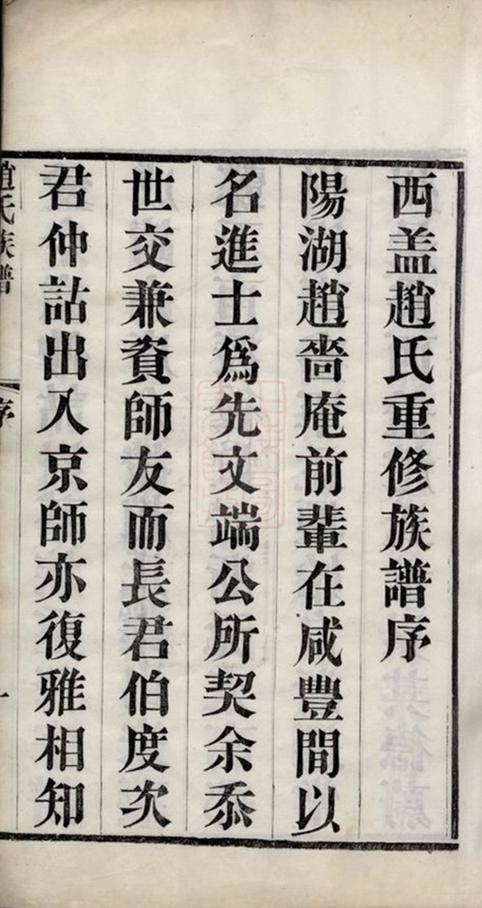 西盖趙氏重修族譜序
陽湖趙嗇庵前輩在咸豐間以
名進士爲先文端公所契余忝
世交兼資師友而長君伯度次
君仲詁出入京師亦復雅相知
趙氏族譜
序
一